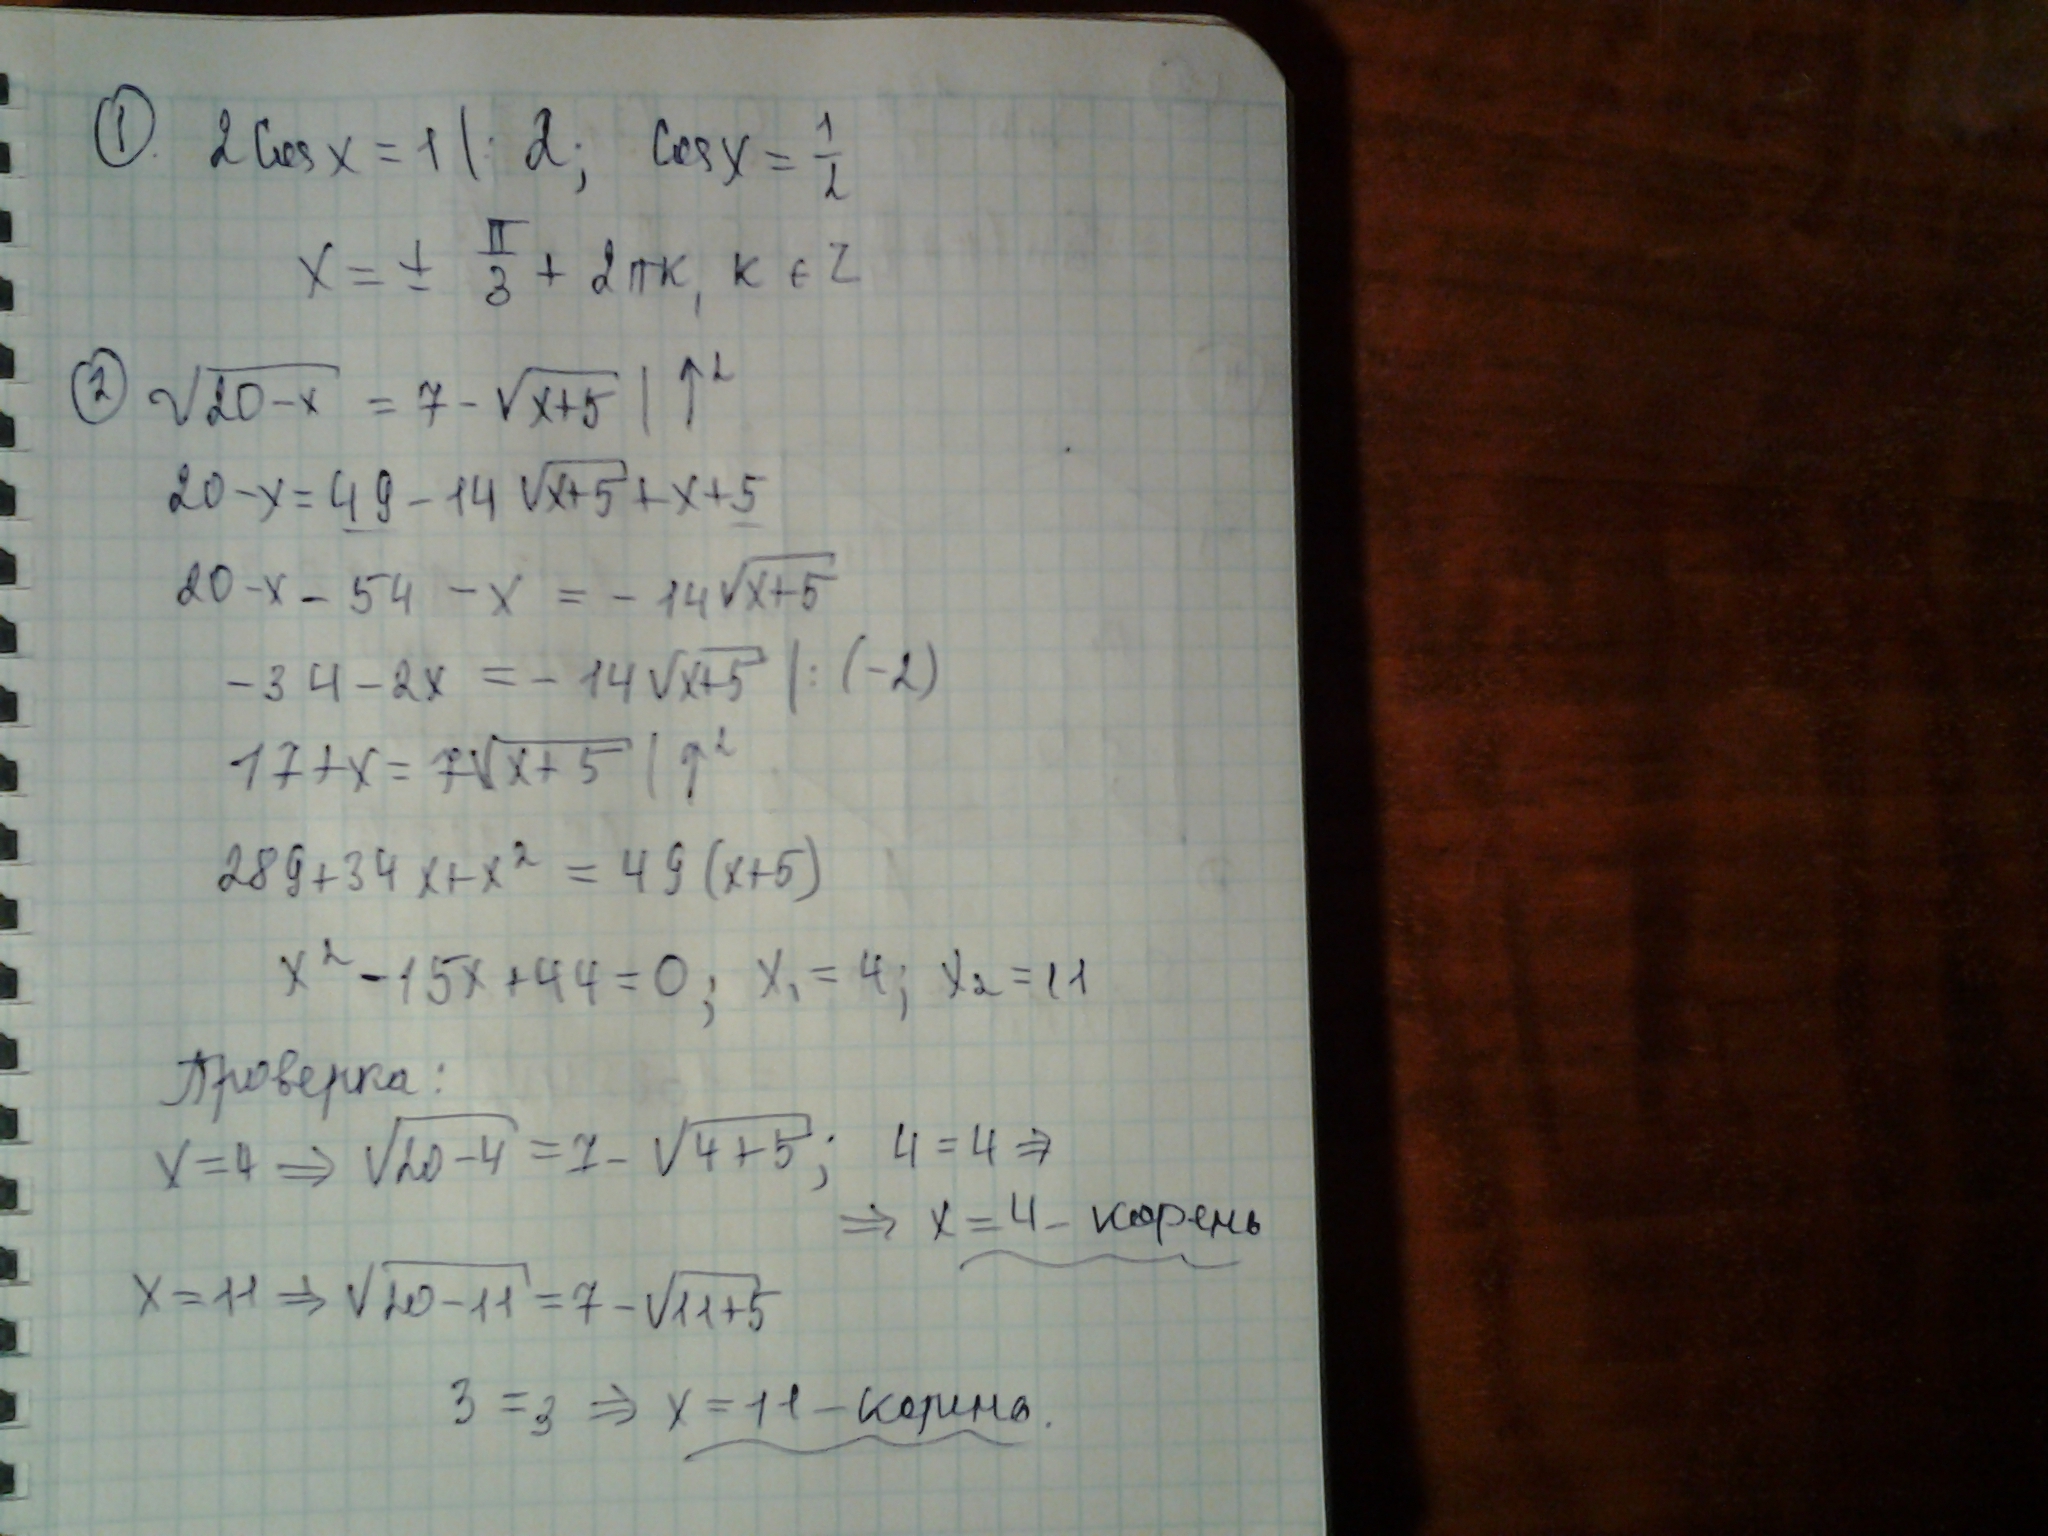 ① 2Cosx = 1 |: 2; Cosx = 1/2
x = ± π/3 + 2πк, к ∈ Z
② √(20-x) = 7 - √(x+5) | ↑²
20-x = 49 - 14√(x+5) + x + 5
20-x - 54 - x = - 14√(x+5)
-34 - 2x = - 14√(x+5) |: (-2)
17+x = 7√(x+5) | ↑²
289+34x+x² = 49(x+5)
x² - 15x + 44 = 0; x₁ = 4; x₂ = 11
Проверка:
x = 4 ⇒ √(20-4) = 7 - √(4+5); 4 = 4 ⇒
⇒ x = 4 - корень
x = 11 ⇒ √(20-11) = 7 - √(11+5)
3 = 3 ⇒ x = 11 - корень.